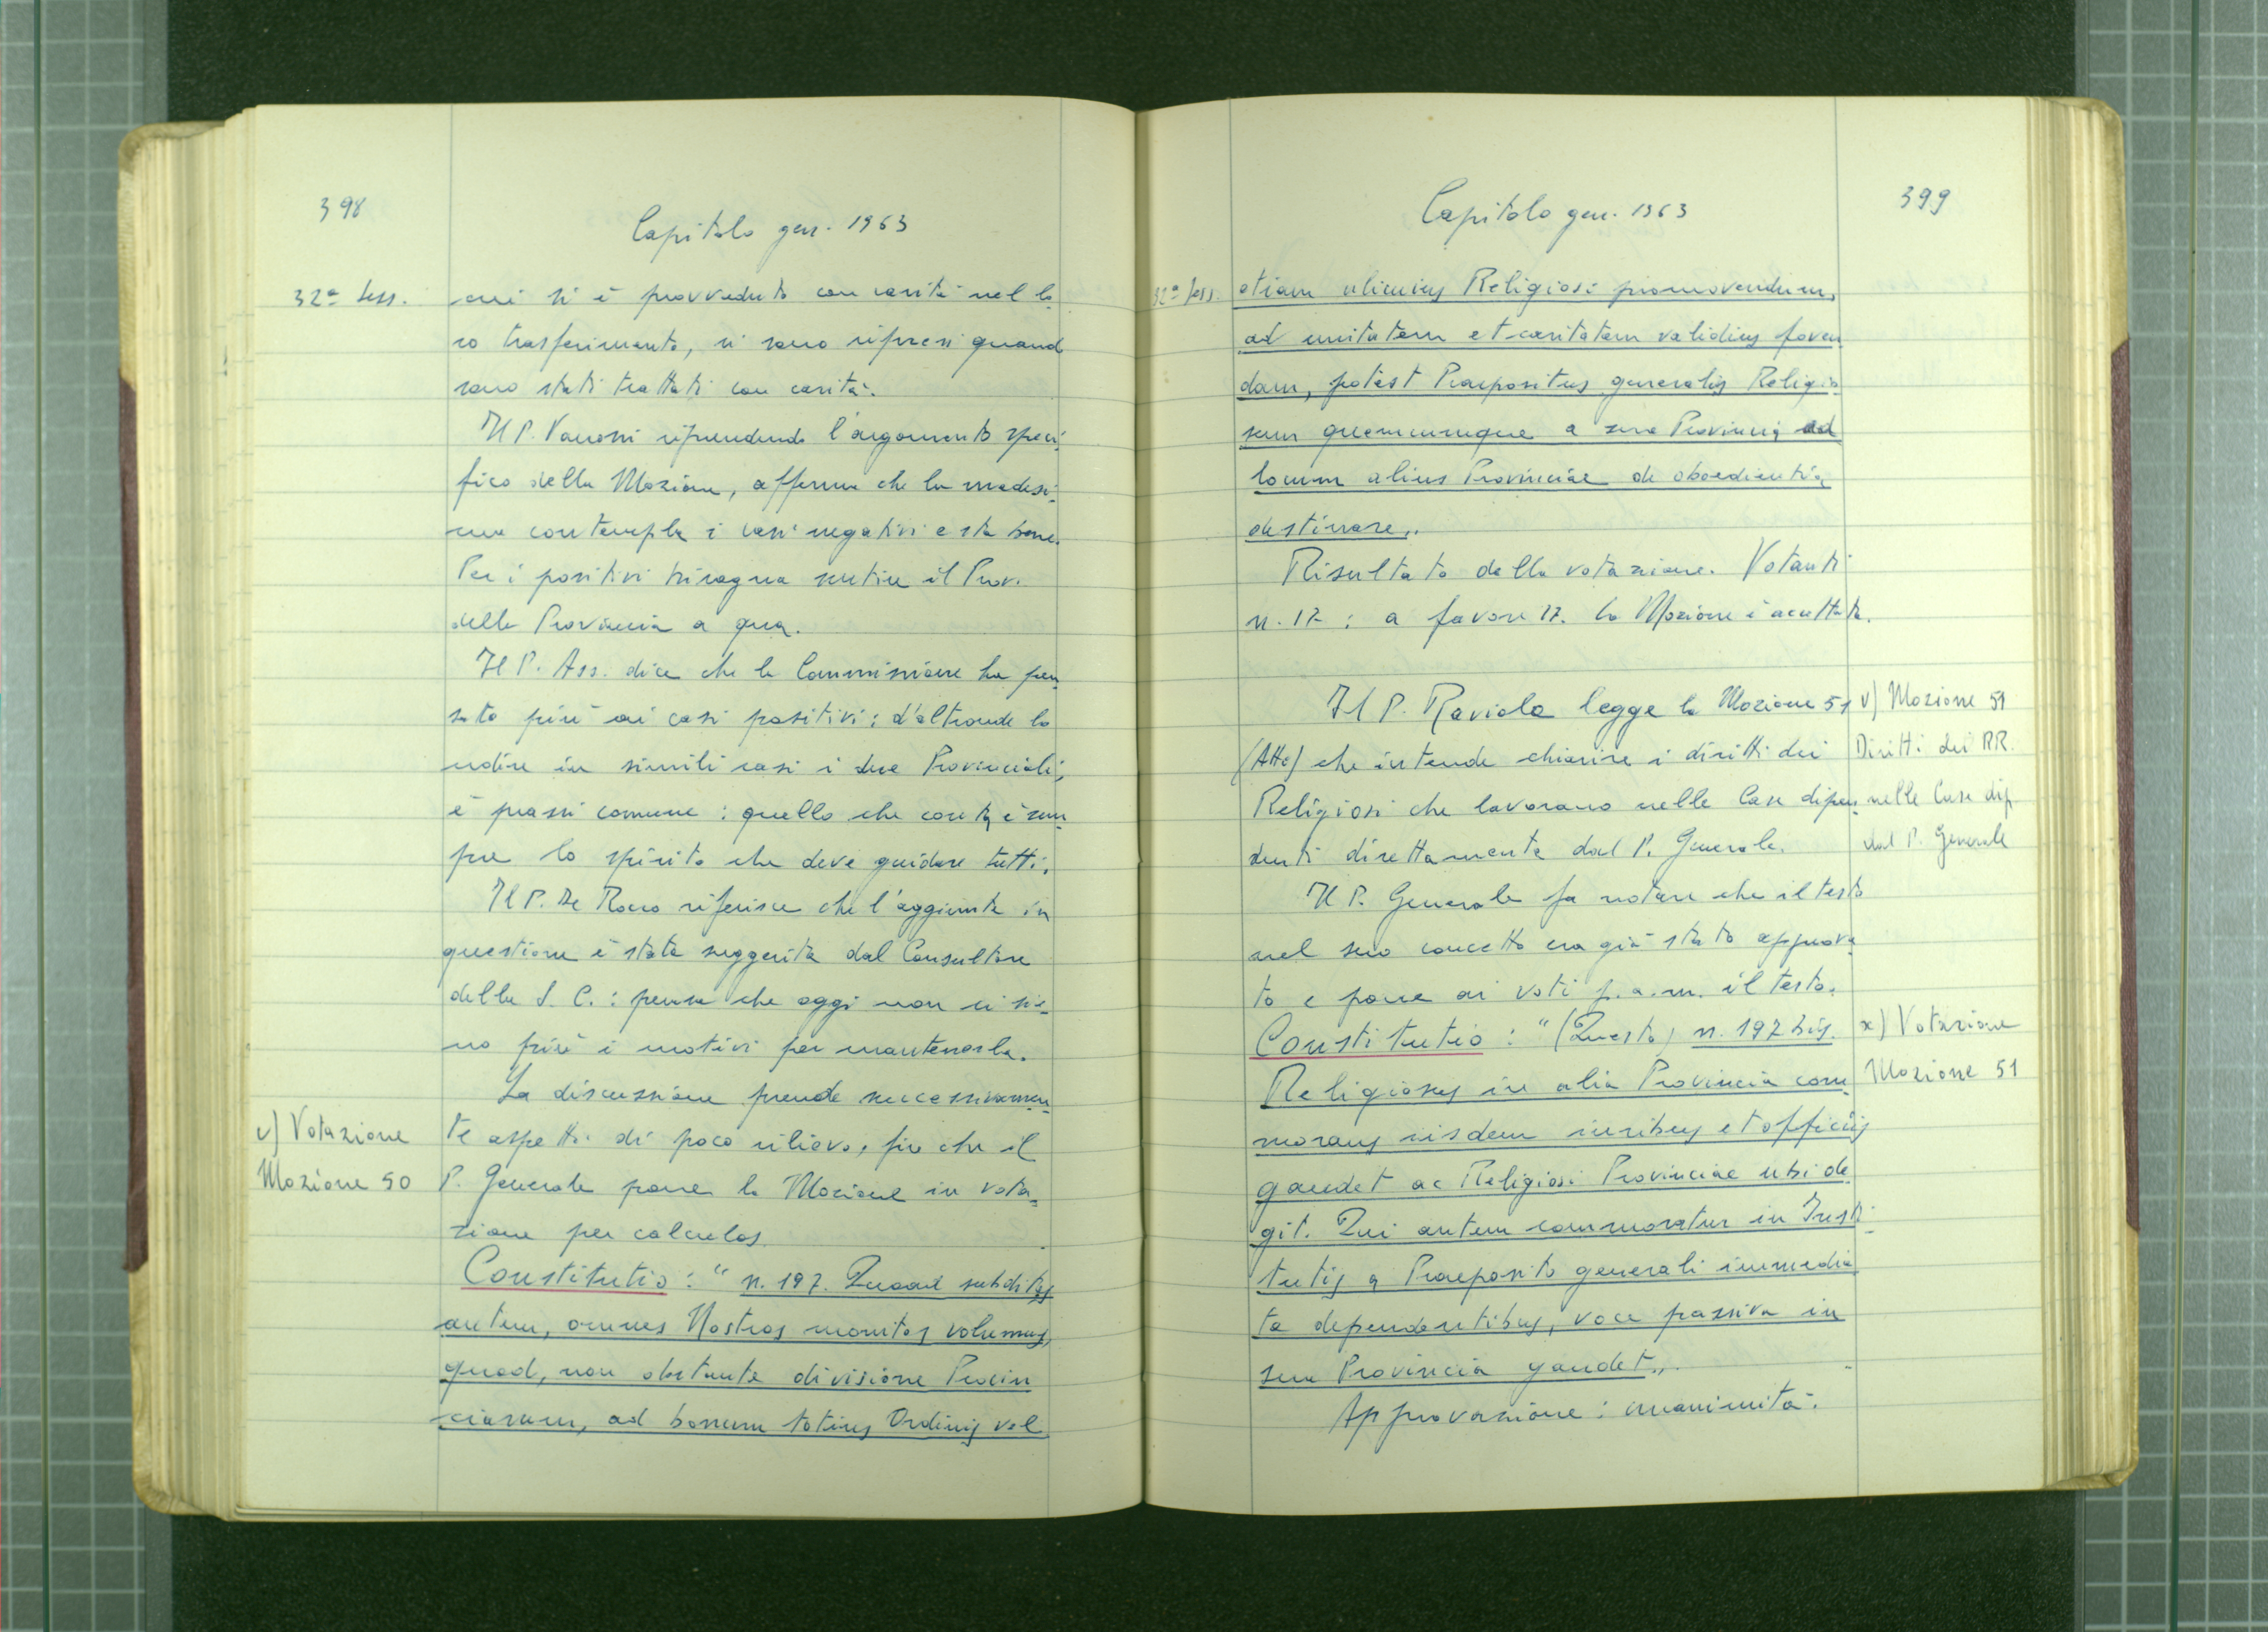 398
Capitolo gen. 1963
32ª Sess.
cui si è provveduto con carità nel lo
ro trasferimento, si sono ripresi quand
sono stati trattati con carità.
Il P. Vanossi riprendendo l'argomento speci
fico della Mozione, afferma che la medesi=
ma contempla i casi negativi e sta bene.
Per i positivi bisogna sentire il Prov.
della Provincia a qua.
Il P. Ass. dice che la Commissione ha pen
sato più ai casi positivi; d'altronde lo
udire in simili casi i due Provinciali,
è prassi comune: quello che conta è sem
pre lo spirito che deve guidare tutti.
Il P. De Rocco riferisce che l'aggiunta in
questione è stata suggerita dal Consultore
della S. C.: pensa che oggi non ci sia=
no più i motivi per mantenerla.
La discussione prende successivamen
te aspetti di poco rilievo, fin che il
P. Generale pone la Mozione in vota=
zione per calculos.
v) Votazione
Mozione 50
Constitutio: " n. 197. Quoad subditos
autem, omnes Nostros monitos volumus,
quod, non obstante divisione Provin
ciarum, ad bonum totius Ordinis vel
Capitolo gen. 1963
399
32ª Sess.
etiam alicuius Religiosi promovendum,
ad unitatem et caritatem validius foven
dam, potest Praepositus generalis Religio
sum quemcumque a sua Provincia ad
locum alius Provinciae de oboedientia
destinare„.
Risultato della votazione. Votanti
n. 17 : a favore 17. La Mozione è accettata.
Il P. Raviolo legge la Mozione 51
(Atto) che intende chiarire i diritti dei
Religiosi che lavorano nelle Case dipen
denti direttamente dal P. Generale.
v) Mozione 51
Diritti dei RR.
nelle Case dip.
dal P. Generale
Il P. Generale fa notare che il testo
nel suo concetto era già stato approva
to e pone ai voti p.a.m. il testo.
Constitutio : " (Questo) n. 197 bis.
Religiosus in alia Provincia com
morans iisdem iuribus et officiis
gaudet ac Religiosi Provinciae ubi de
git. Qui autem commoratur in Insti
tutis a Praeposito generali immedia
te dependentibus, voce passiva in
sua Provincia gaudet„.
x) Votazione
Mozione 51
Approvazione: unanimità.